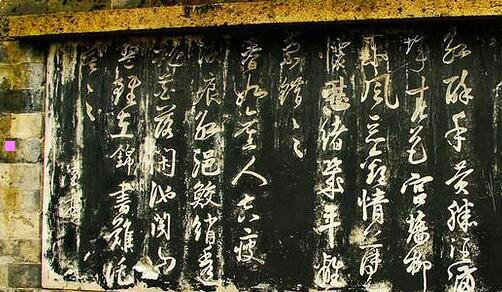 紅酥手黄縢酒滿
城春色宮牆柳
東風惡歡情薄一
懷愁緒幾年離
索錯〻〻
春如舊人空瘦
淚痕紅浥鮫綃透
桃花落閑池閣山
盟雖在錦書難託
莫〻〻